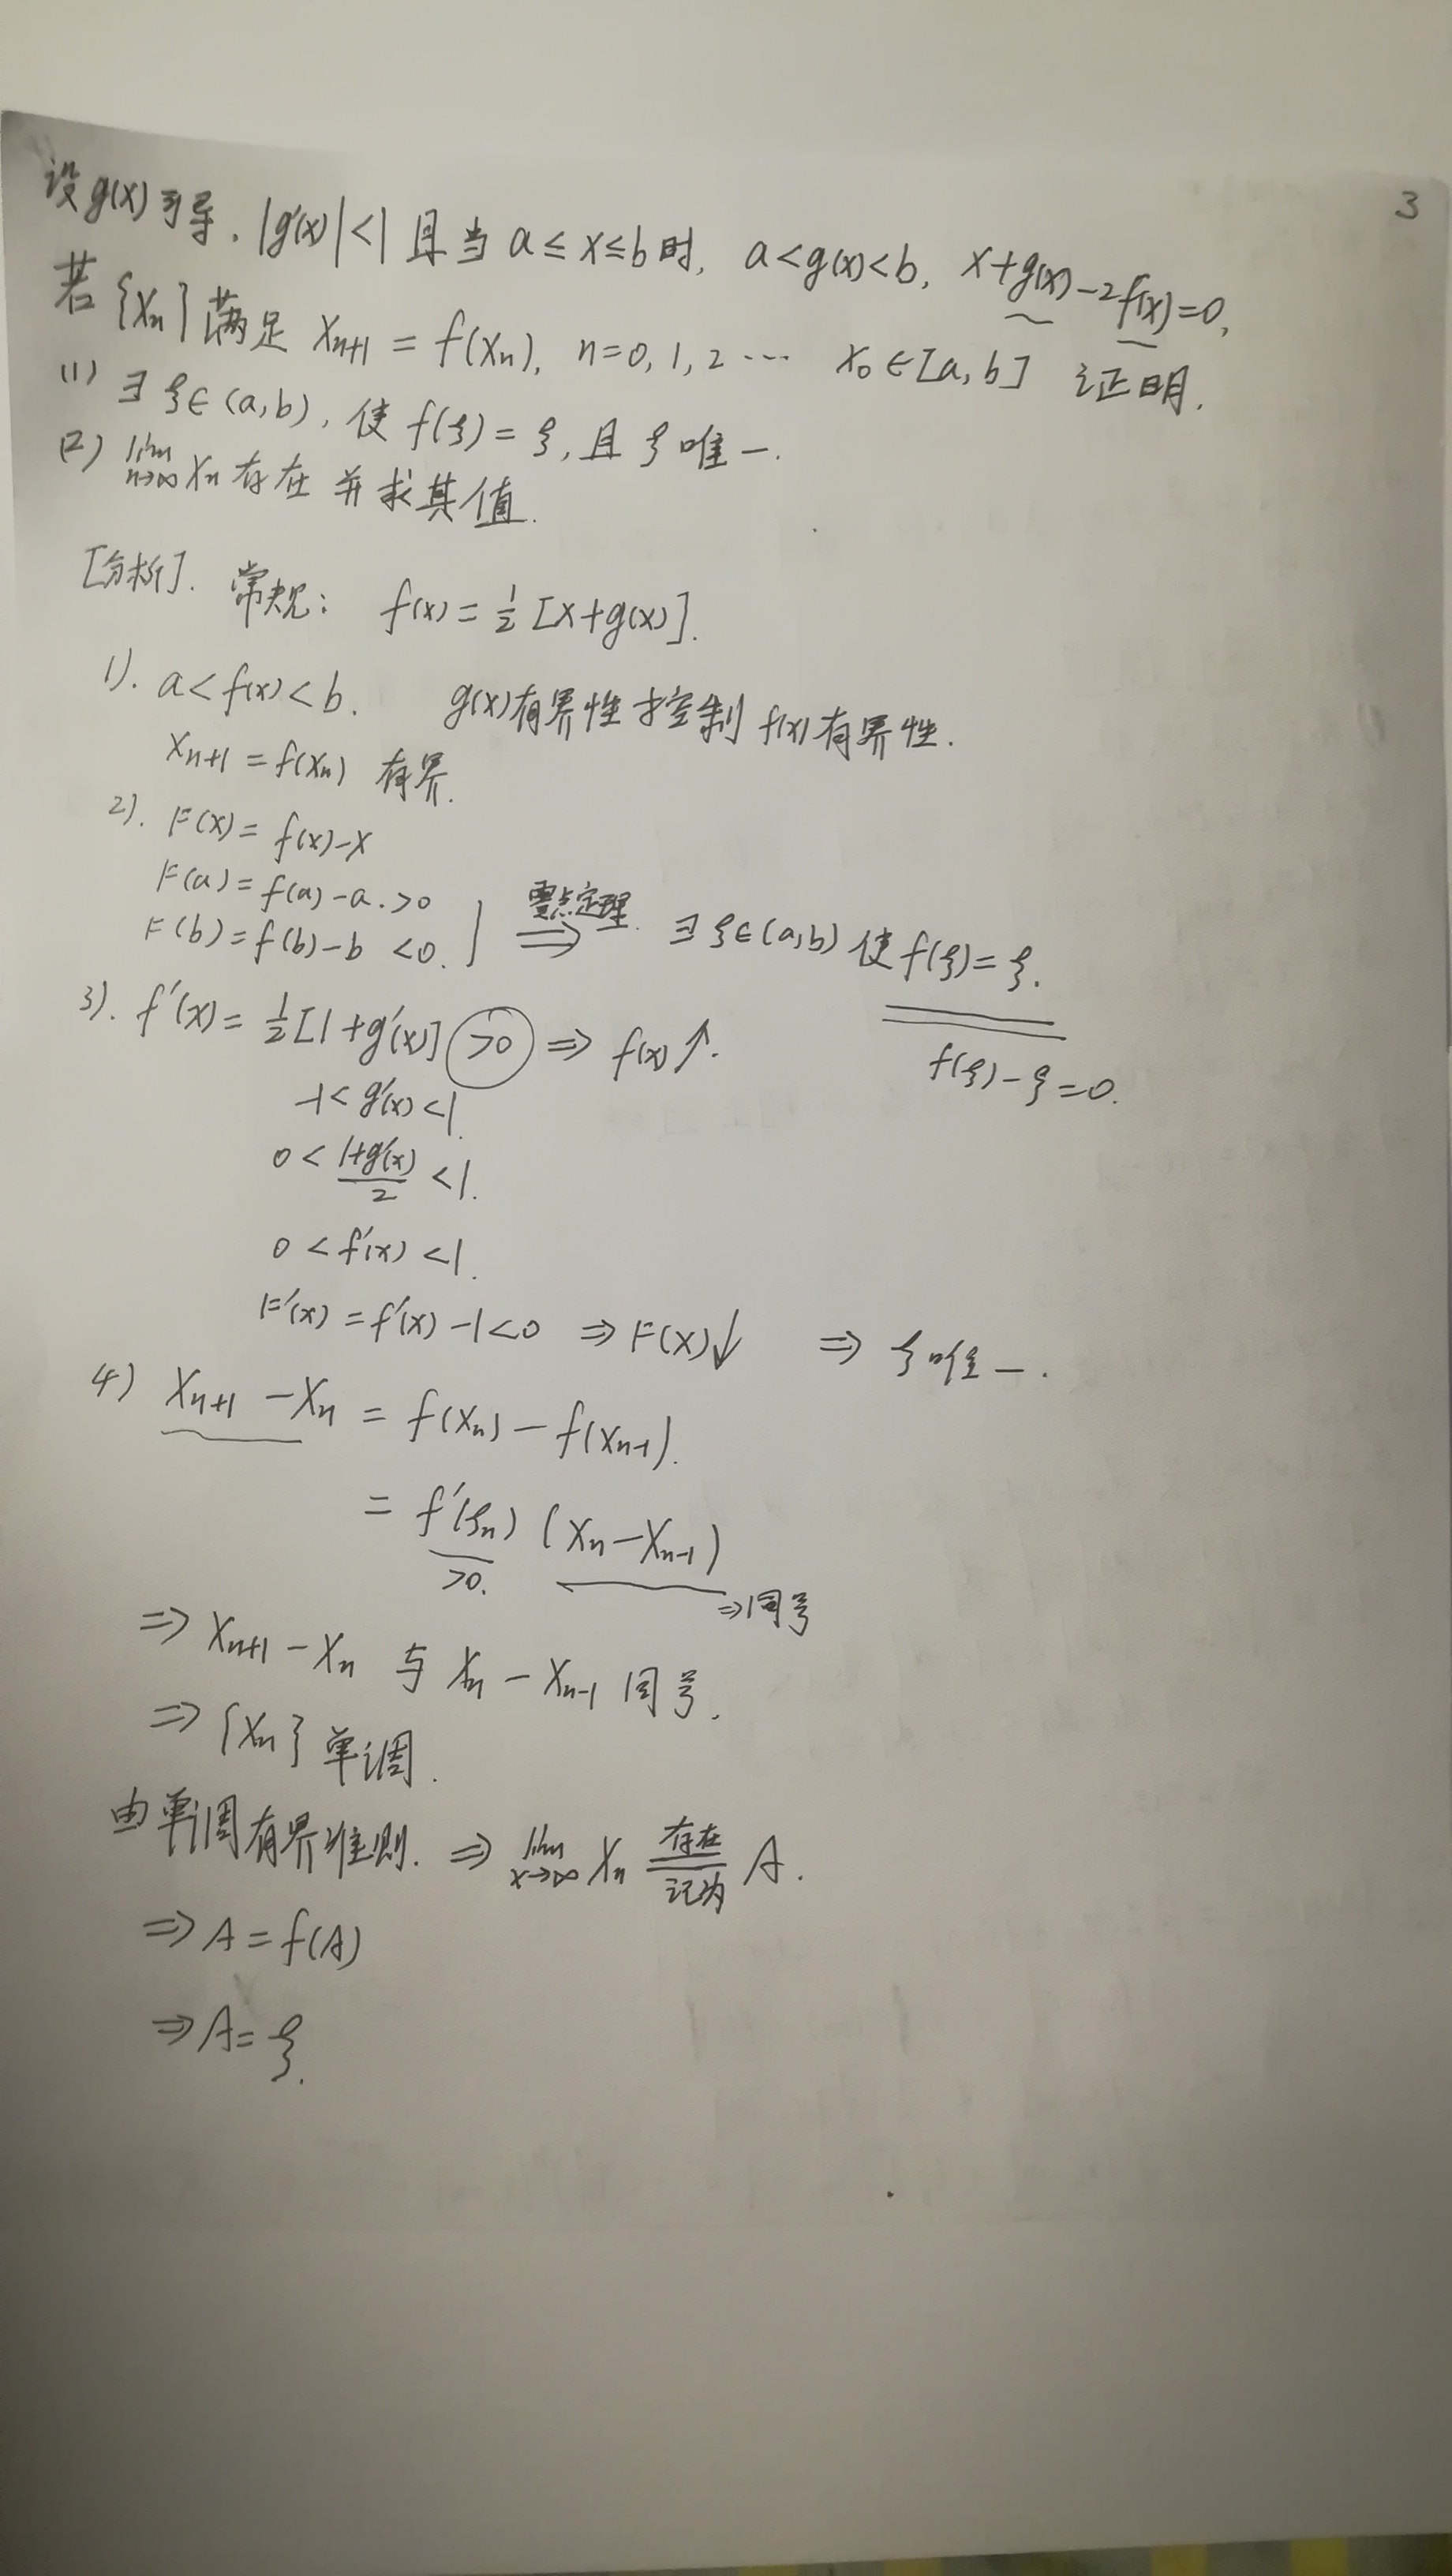 3
设g(x)可导. |g'(x)|<1 且当 a≤x≤b时, a<g(x)<b, x+g(x)-2f(x)=0,
若{xₙ}满足 xₙ₊₁=f(xₙ), n=0,1,2… x₀∈[a,b] 证明.
(1) ∃ξ∈(a,b), 使f(ξ)=ξ, 且ξ唯一.
(2) lim n→∞ xₙ存在 并求其值.
[分析]. 常规: f(x)=½[x+g(x)].
1). a<f(x)<b. g(x)有界性控制f(x)有界性.
xₙ₊₁=f(xₙ) 有界.
2). F(x)=f(x)-x
F(a)=f(a)-a.>0
F(b)=f(b)-b <0. ] 零点定理. ⇒ ∃ξ∈(a,b) 使f(ξ)=ξ.
3). f'(x)=½[1+g'(x)] >0 ⇒ f(x)↑. f(ξ)-ξ=0.
-1<g'(x)<1.
0< (1+g'(x))/2 <1.
0<f'(x)<1.
F'(x)=f'(x)-1<0 ⇒F(x)↓ ⇒ ξ唯一.
4) xₙ₊₁-xₙ = f(xₙ)-f(xₙ₋₁).
= f'(ξₙ) (xₙ-xₙ₋₁)
>0. ⇒同号
⇒ xₙ₊₁-xₙ 与 xₙ-xₙ₋₁ 同号.
⇒ {xₙ} 单调.
由单调有界准则. ⇒ lim x→∞ xₙ 存在 记为 A.
⇒A=f(A)
⇒A=ξ.